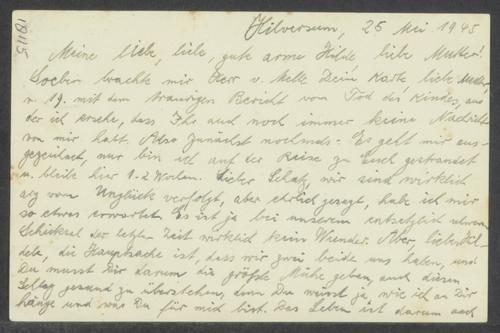 Hilversum, 25 Mei 1945
Meine liebe, liebe, gute arme Hilde, liebe Mutter!
Soeben brachte mir Herr v. Melle Deine Karte, liebe Mutter,
v. 19. mit dem traurigen Bericht vom Tod des Kindes, aus
der ich ersehe, dass Ihr auch noch immer keine Nachricht
von mir habt. Also zunächst nochmals: Es geht mir aus-
gezeichnet, nur bin ich auf der Reise zu Euch gestrandet
u. bleibe hier 1-2 Wochen. Lieber Schatz, wir sind wirklich
arg vom Unglück verfolgt, aber ehrlich gesagt, habe ich mir
so etwas erwartet. Es ist ja bei unserem entsetzlich schweren
Schicksal der letzten Zeit wirklich kein Wunder. Aber, liebe Hil-
dele, die Hauptsache ist, dass wir zwei beide uns haben, und
Du musst Dir darum die größte Mühe geben, auch diesen
Schlag gesund zu überstehen, denn Du weisst ja, wie ich an Dir
hänge und was Du für mich bist. Das Leben ist darum auch
18115